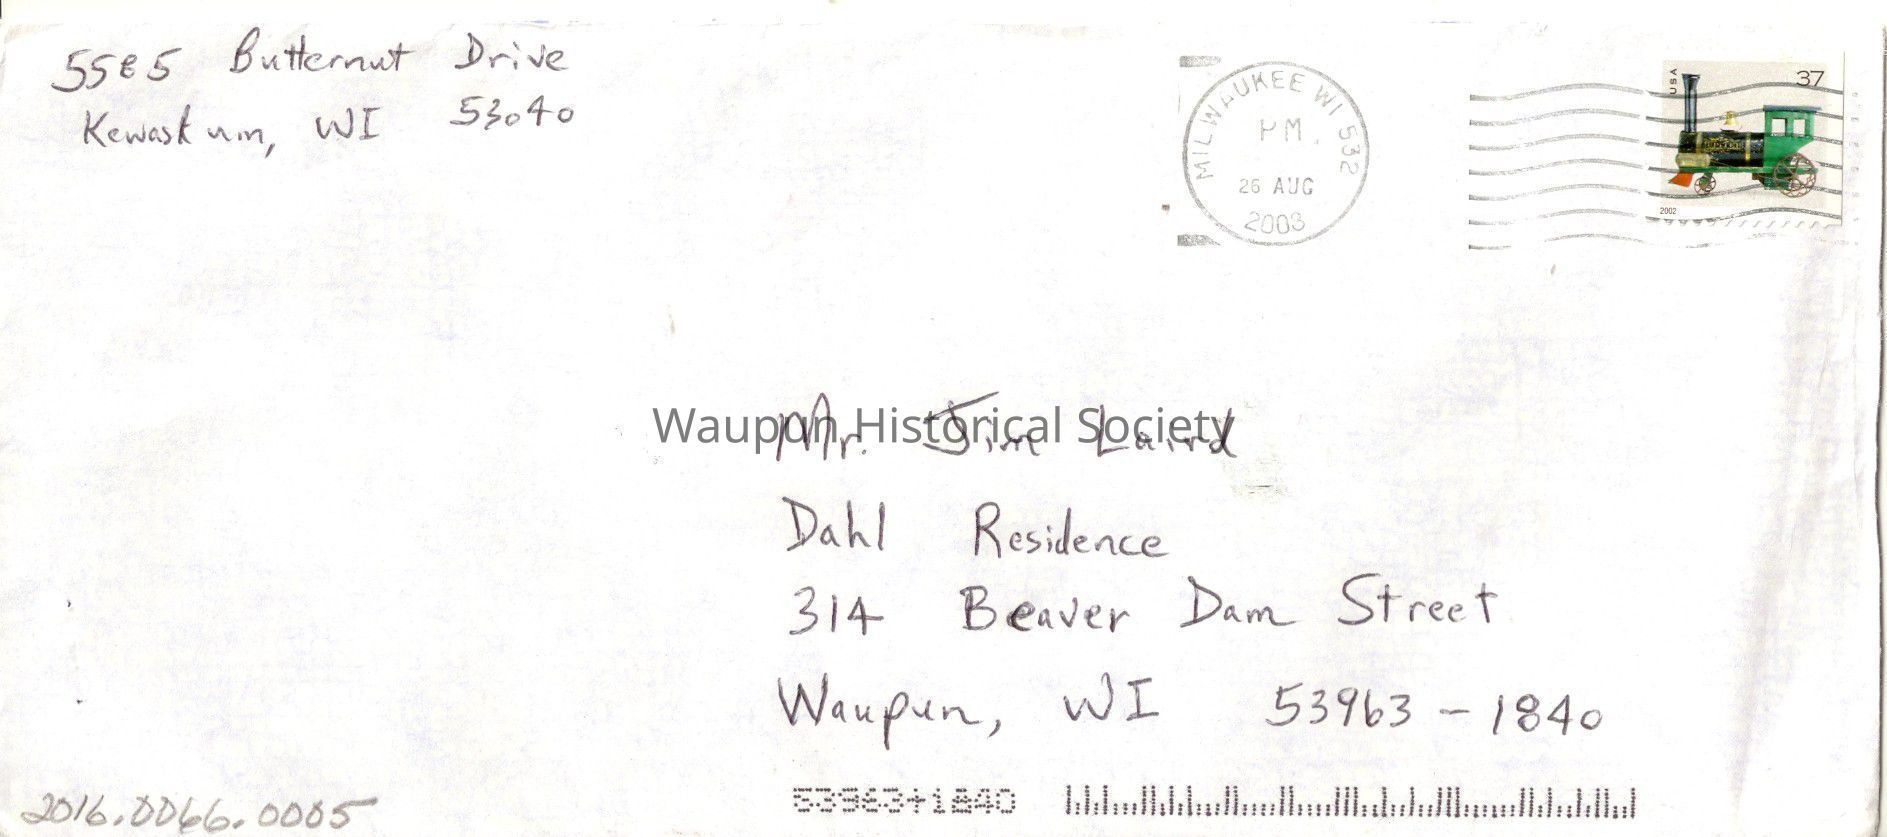 5585 Butternut Drive
Kewaskum, WI 53040
MILWAUKEE WI 532
PM
26 AUG
2003
USA
37
2002
Waupun Historical Society
Mr. Jim Laird
Dahl Residence
314 Beaver Dam Street
Waupun, WI 53963-1840
53963+1840
2016.0066.0005